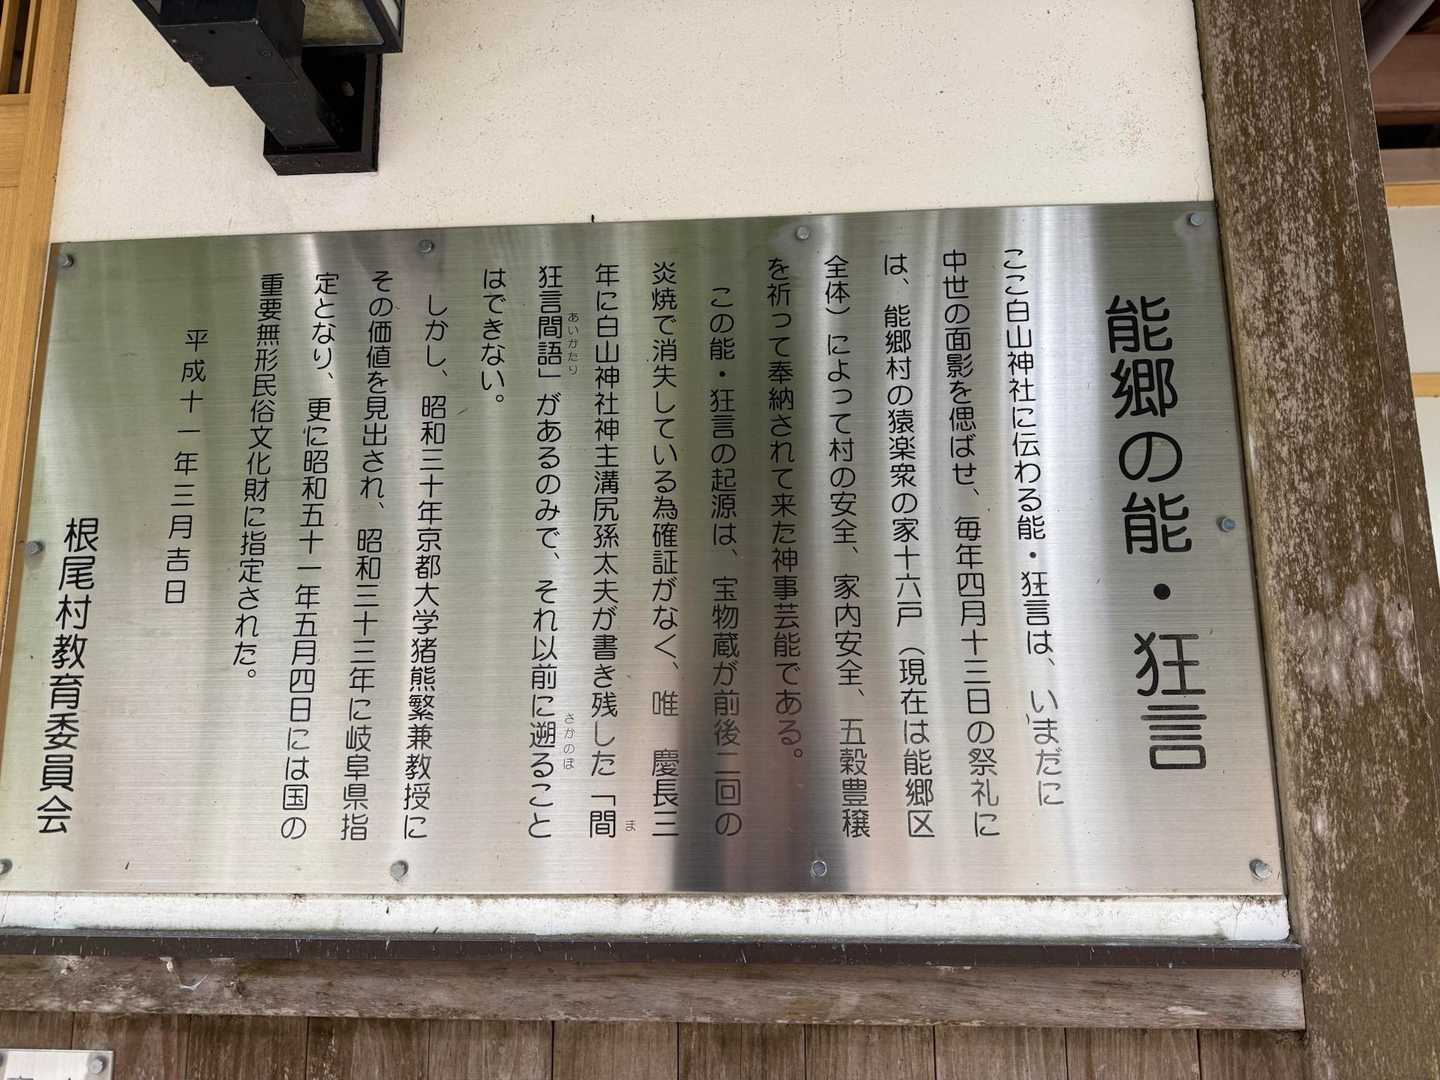 能郷の能・狂言
ここ白山神社に伝わる能・狂言は、いまだに
中世の面影を偲ばせ、毎年四月十三日の祭礼に
は、能郷村の猿楽衆の家十六戸（現在は能郷区
全体）によって村の安全、家内安全、五穀豊穣
を祈って奉納されて来た神事芸能である。
この能・狂言の起源は、宝物蔵が前後二回の
炎焼で消失している為確証がなく、唯　慶長三
年に白山神社神主溝尻孫太夫が書き残した「間
ま
狂言間語」があるのみで、それ以前に遡ること
あいがたり
さかのぼ
はできない。
しかし、昭和三十年京都大学猪熊繁兼教授に
その価値を見出され、昭和三十三年に岐阜県指
定となり、更に昭和五十一年五月四日には国の
重要無形民俗文化財に指定された。
平成十一年三月吉日
根尾村教育委員会